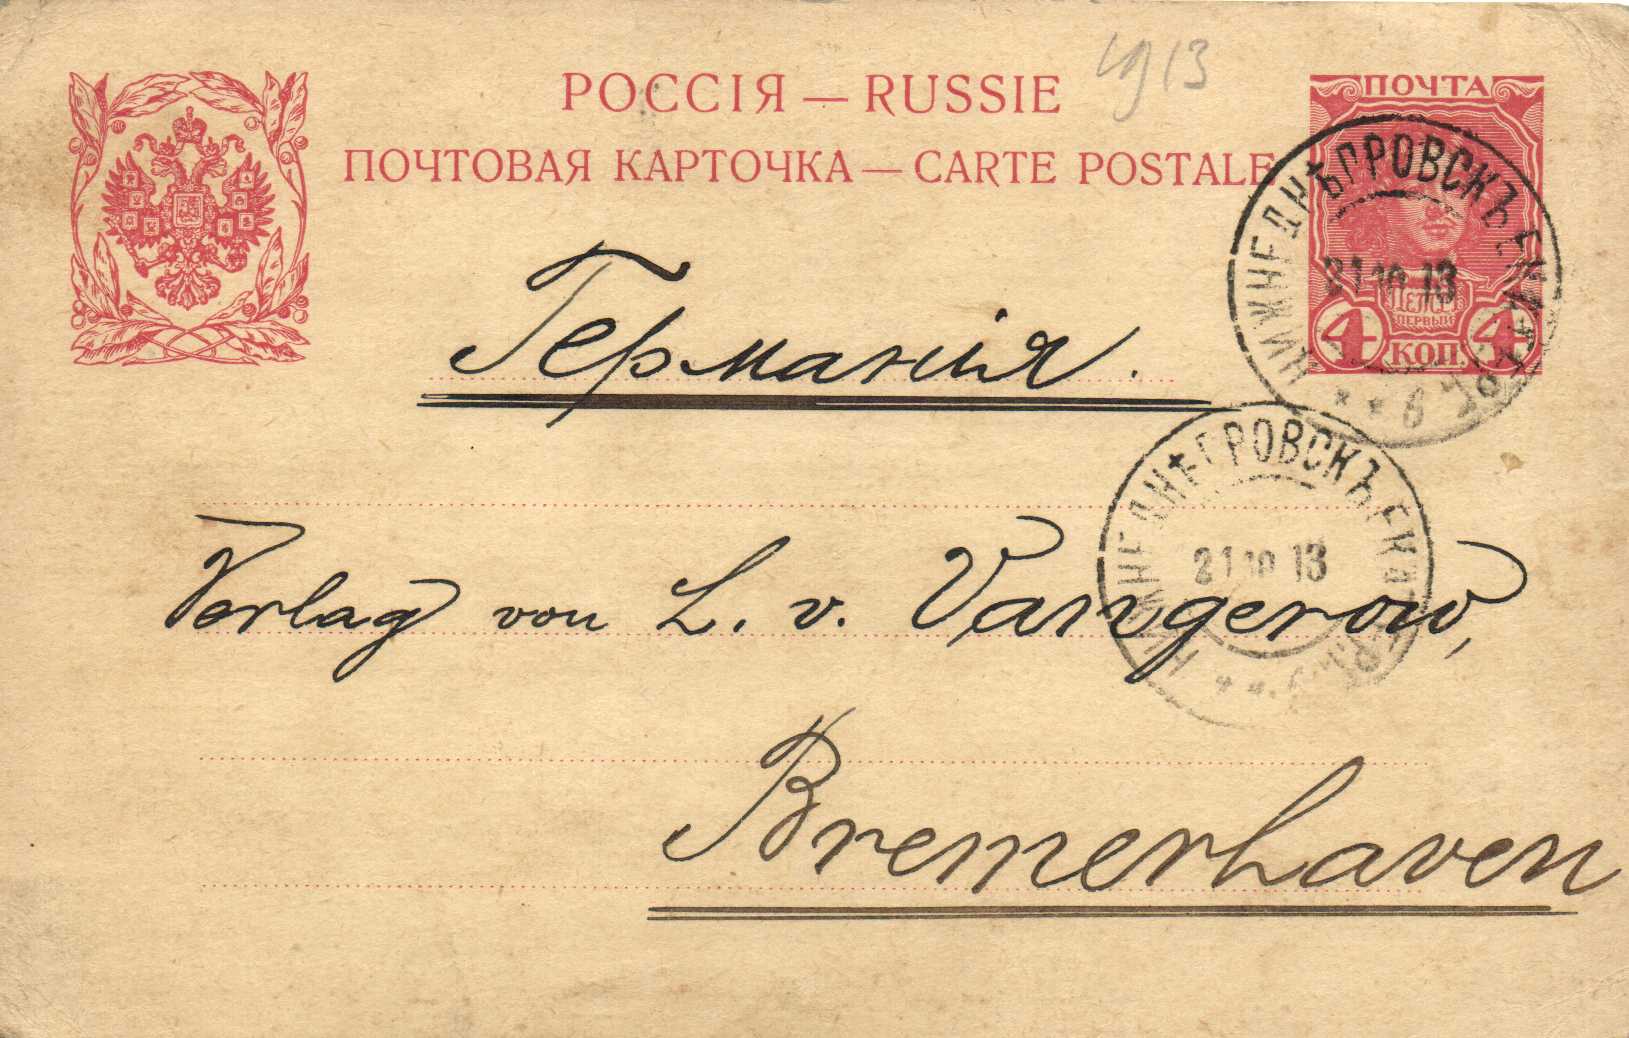 1913
РОССІЯ — RUSSIE
ПОЧТОВАЯ КАРТОЧКА — CARTE POSTALE
ПОЧТА
ПЕТРЪ I
ПЕРВЫЙ
4 КОП. 4
НИЖНЕДНѢПРОВСКЪ ЕКАТ
21 10 13
** б **
Германія.
НИЖНЕДНѢПРОВСКЪ ЕКАТ
21 10 13
Verlag von L. v. Vangerow,
Bremerhaven